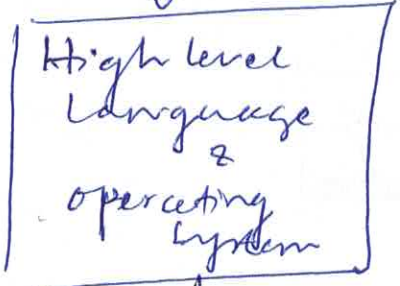 High level
Language
&
operating
system